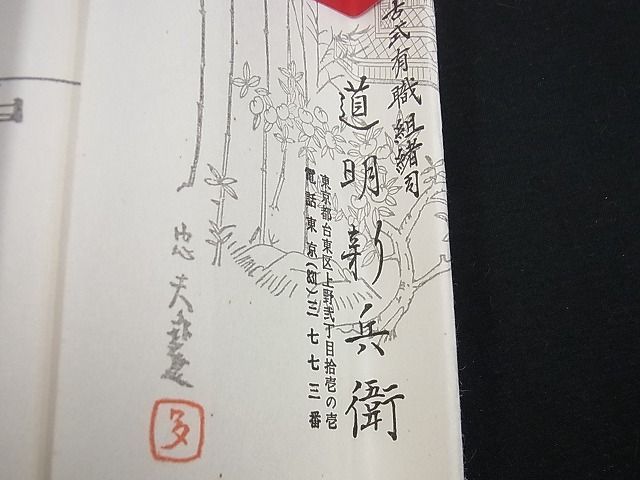 古式有職組緒司
道明新兵衛
東京都台東区上野弐丁目拾壱の壱
電話東京(圀)三七七三番
忠夫